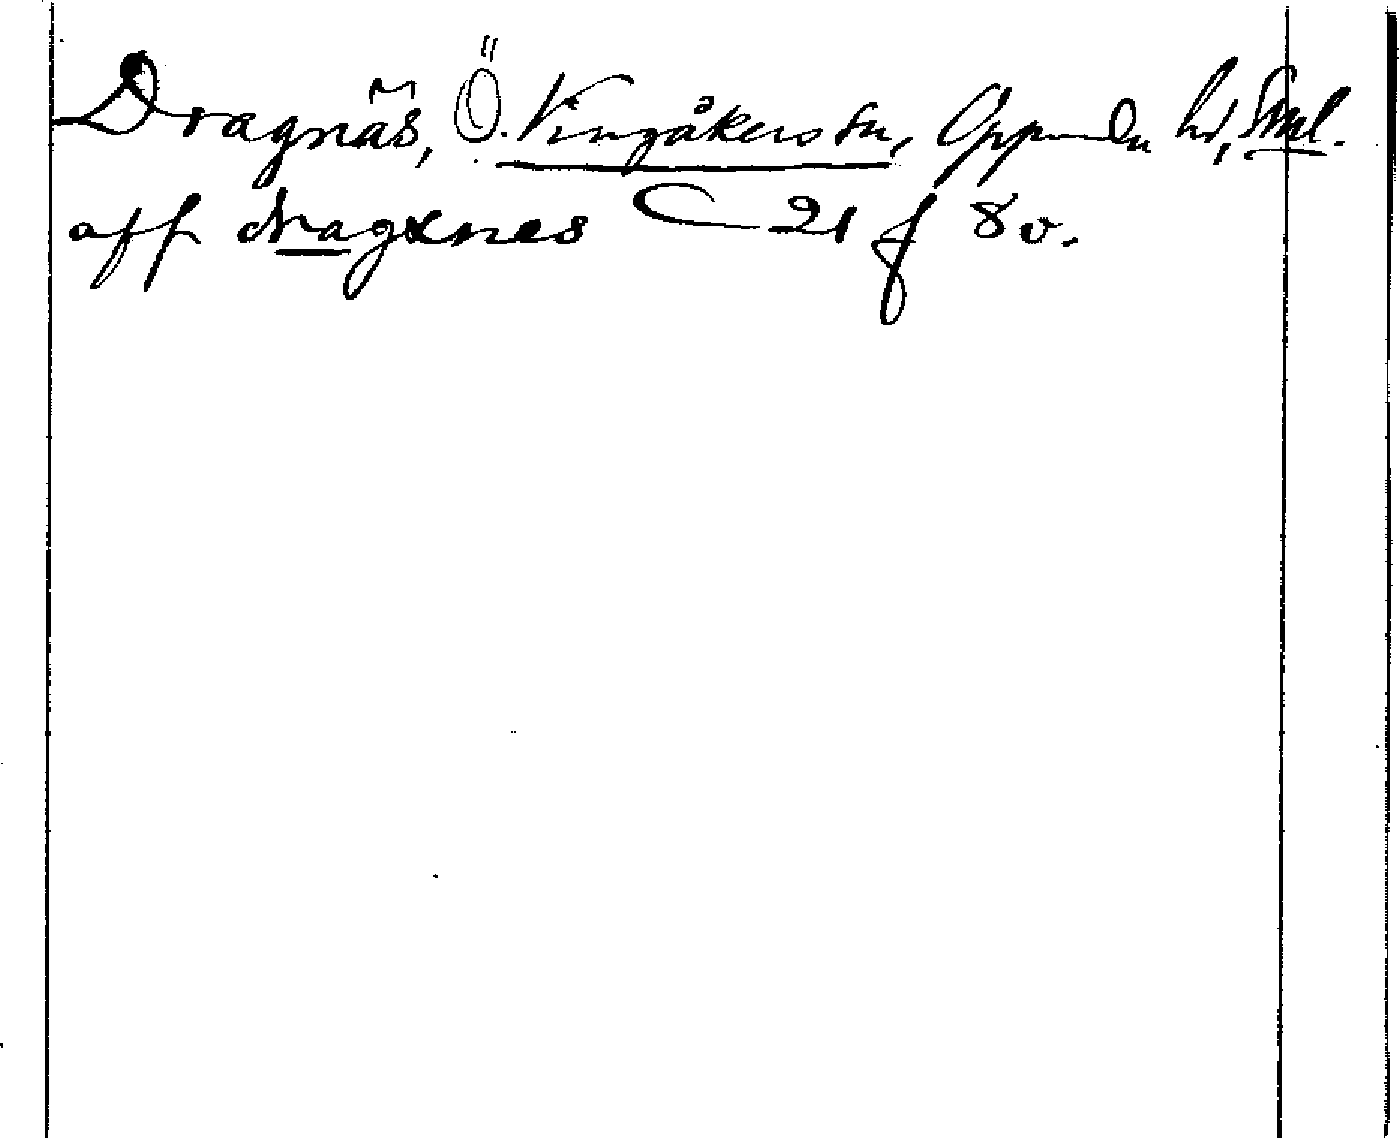 Dragnäs, Ö. Vingåkers sn, Oppunda hd, Sml.
aff dragxnes C 21 f 80.